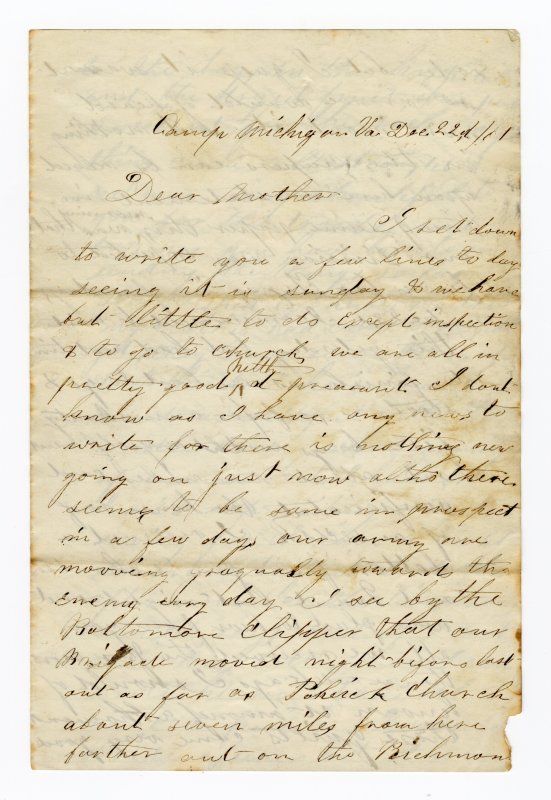 Camp Michigan Va Dec 22d/61
Dear Mother
I set down
to write you a few lines to day
seeing it is sunday & we have
but little to do except inspection
& to go to church we are all in
helth
pretty good at preasant I dont
know as I have any news to
write for there is nothing new
going on just now altho there
seems to be some in prospect
in a few days our army are
movving gragually towards the
Enemy evry day I see by the
Boltomore Clipper that our
Brigade moved night before last
out as far as Pohick Church
about seven miles from here
farther out on the Richmon